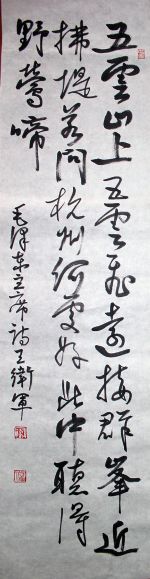 五雲山上五雲飛遠接群峯近
拂堤若問杭州何處好此中聽得
野鶯啼
毛澤東主席詩王衛軍